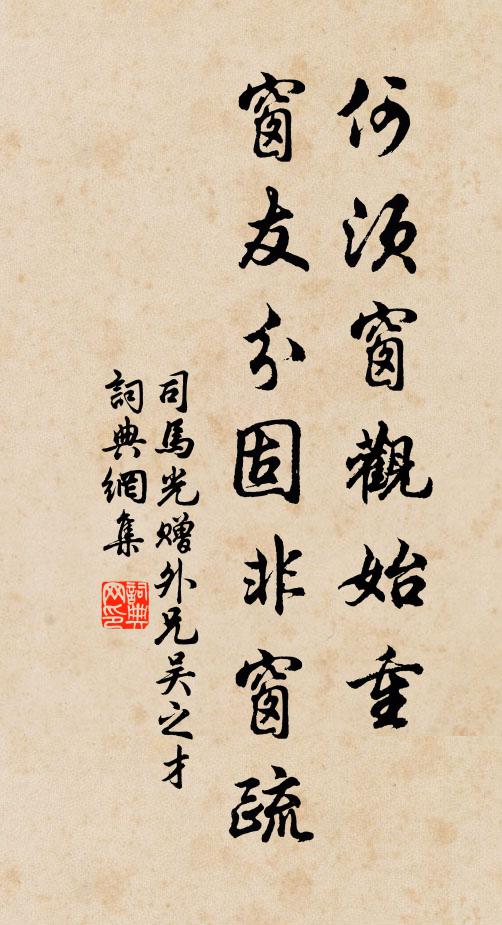 何須窗觀始重
窗友分固非窗疏
司馬光贈外兄吴之才
詞典網集
詞典网印